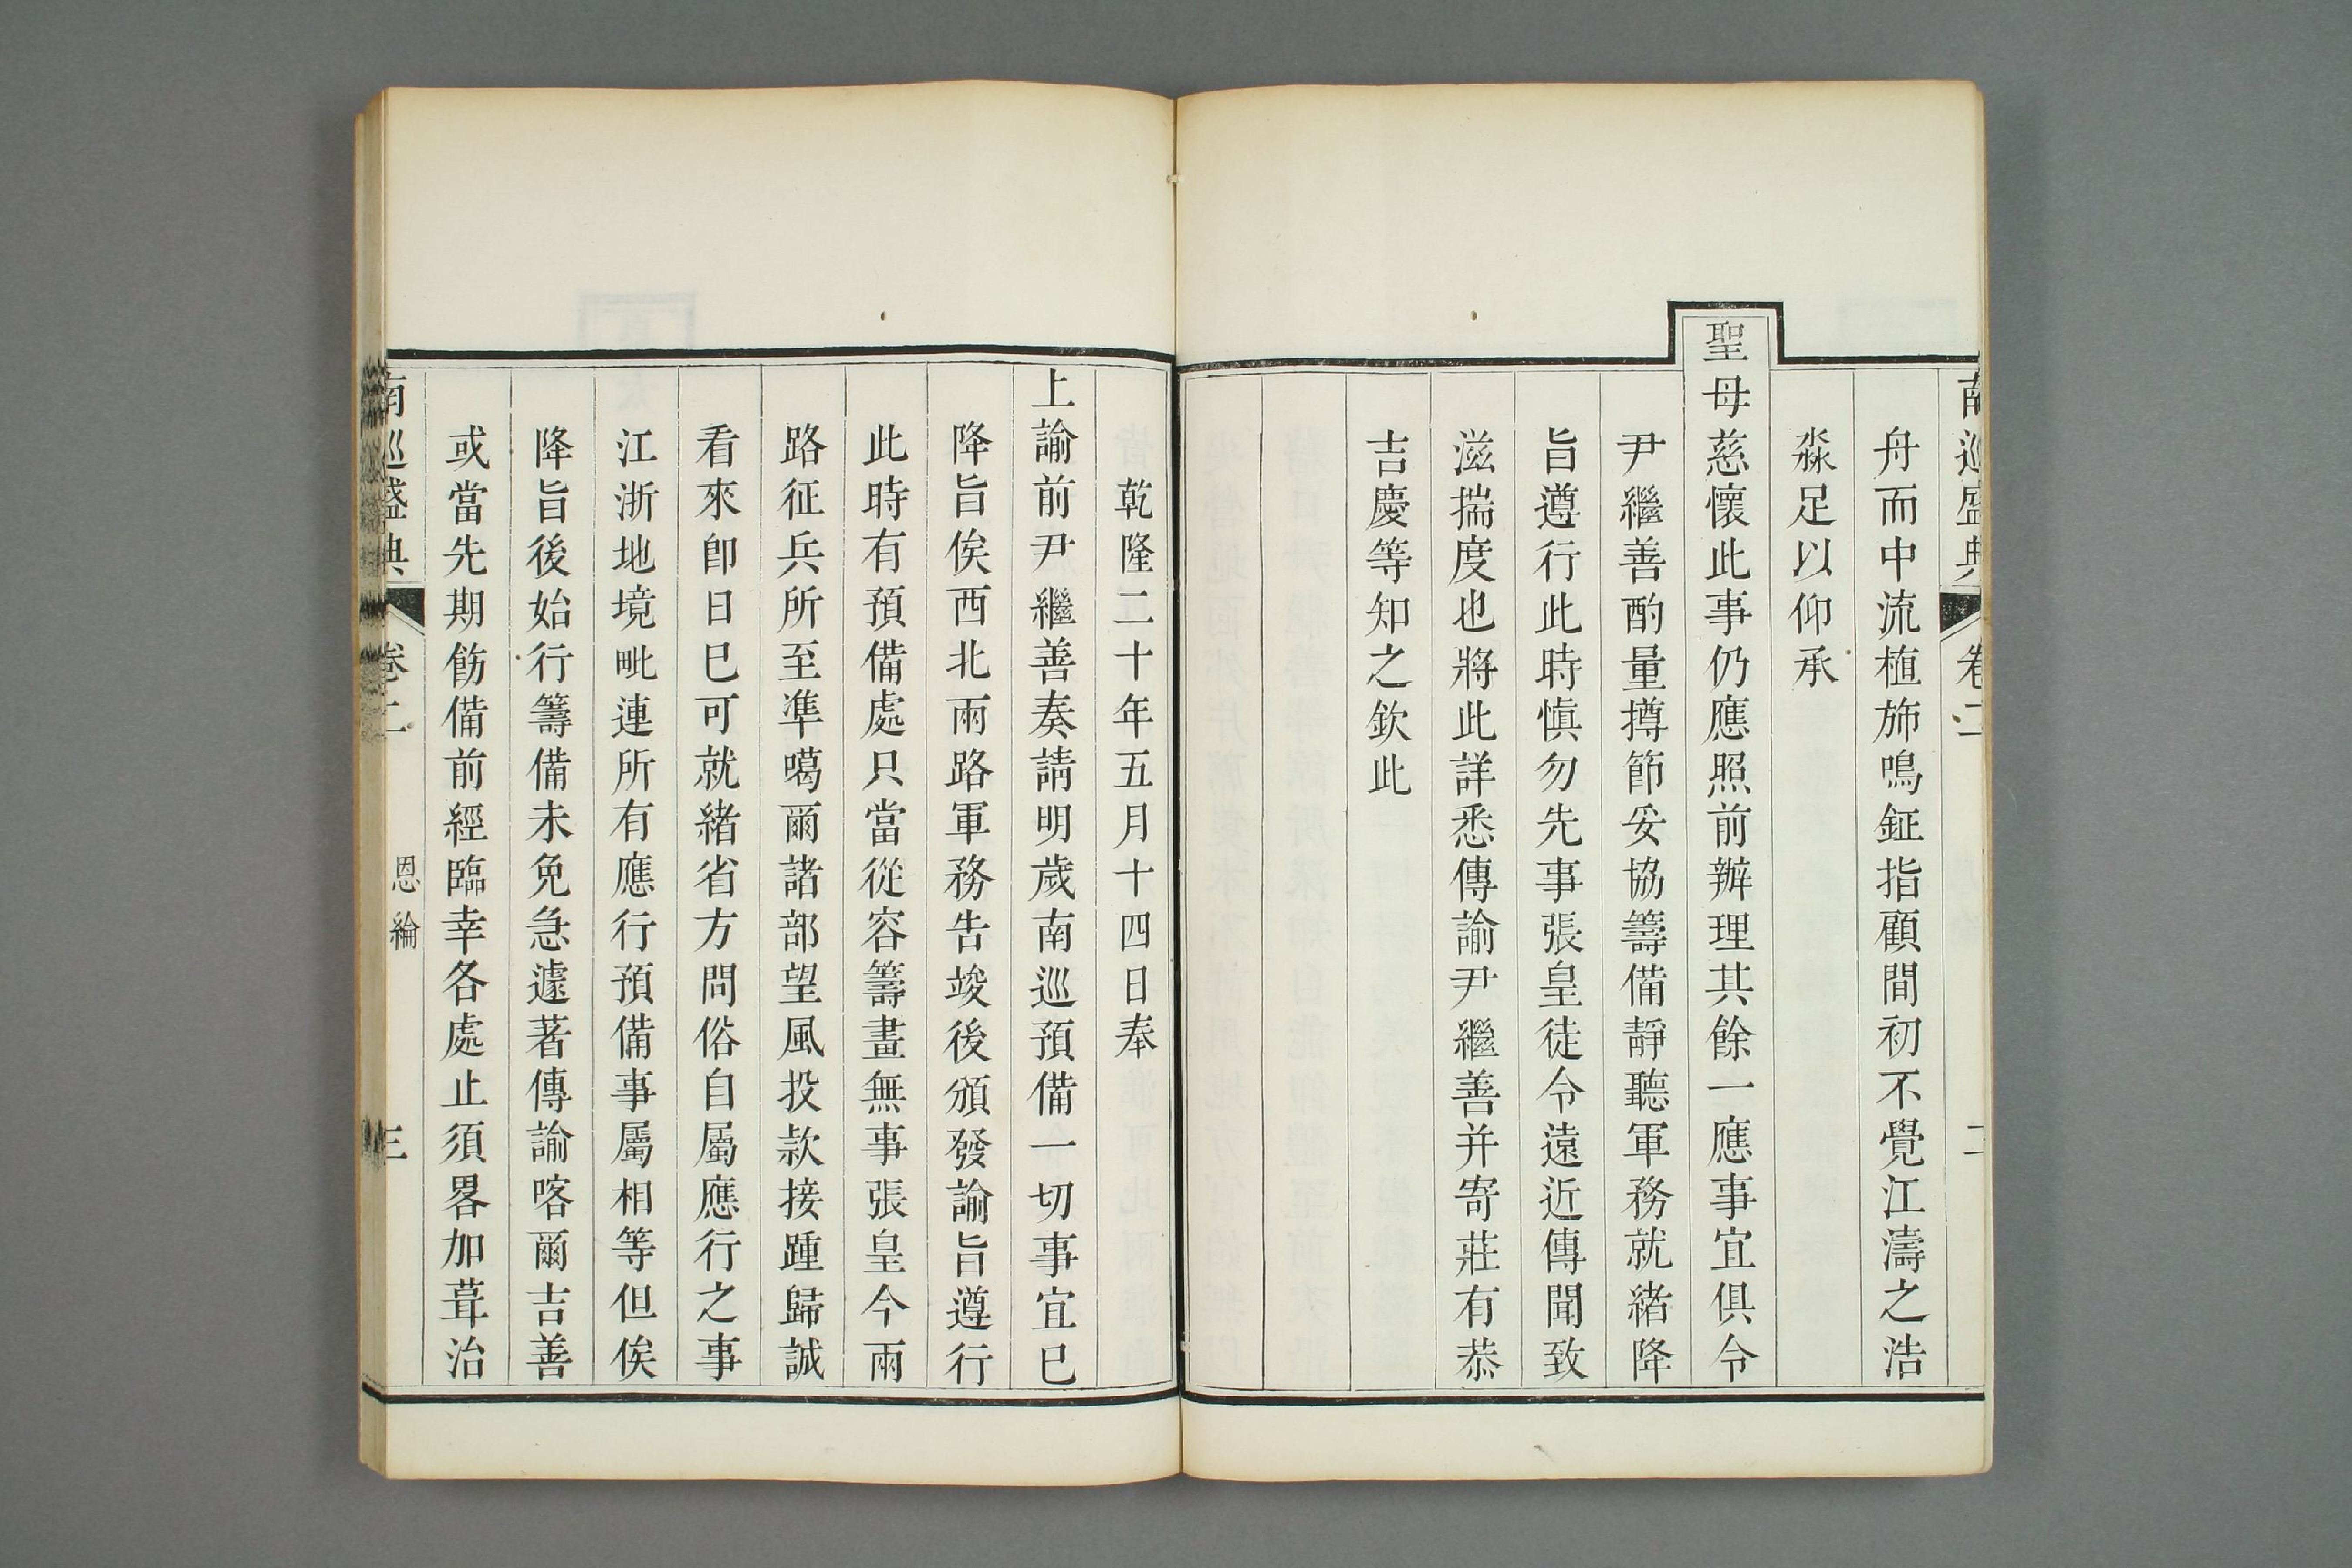 南巡盛典 卷二 二
舟而中流植斾鳴鉦指顧間初不覺江濤之浩
淼足以仰承
聖母慈懷此事仍應照前辦理其餘一應事宜俱令
尹繼善酌量撙節妥協籌備靜聽軍務就緒降
旨遵行此時慎勿先事張皇徒令遠近傳聞致
滋揣度也將此詳悉傳諭尹繼善并寄莊有恭
吉慶等知之欽此
乾隆二十年五月十四日奉
上諭前尹繼善奏請明歲南巡預備一切事宜已
降旨俟西北兩路軍務告竣後頒發諭旨遵行
此時有預備處只當從容籌畫無事張皇今兩
路征兵所至凖噶爾諸部望風投款接踵歸誠
看來卽日已可就緒省方問俗自屬應行之事
江浙地境毗連所有應行預備事屬相等但俟
降旨後始行籌備未免急遽著傳諭喀爾吉善
或當先期飭備前經臨幸各處止須畧加葺治
南巡盛典 卷二 恩綸 三